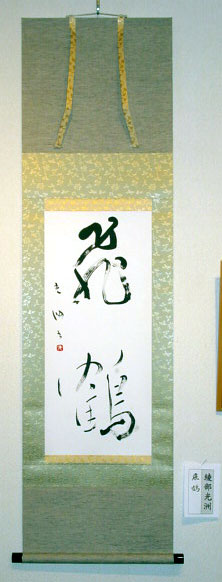 飛鶴
光洲
綾部光洲
飛鶴